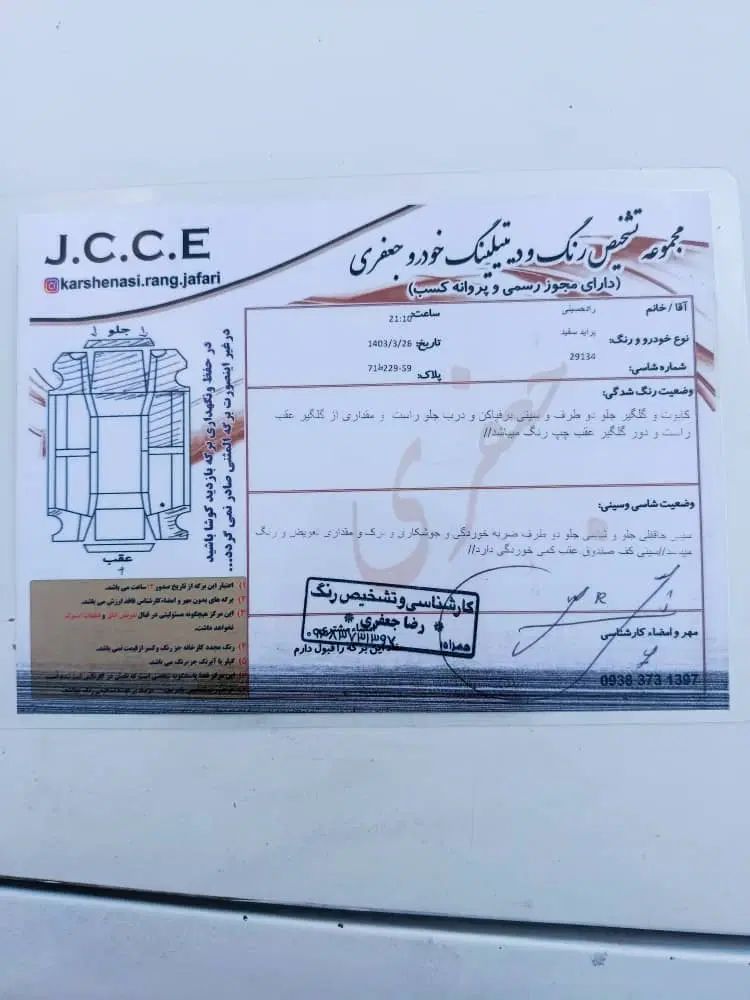 J.C.C.E
karshenasi.rang.jafari
مجموعه تشخیص رنگ و دیتیلینگ خودرو جعفری
(دارای مجوز رسمی و پروانه کسب)
آقا / خانم رادحسینی
ساعت: 21:10
نوع خودرو و رنگ: پراید سفید
تاریخ: 1403/3/26
شماره شاسی: 29134
پلاک: 59-229ط71
وضعیت رنگ شدگی:
کاپوت و گلگیر جلو دو طرف و سینی برفپاکن و درب جلو راست و مقداری از گلگیر عقب
راست و دور گلگیر عقب چپ رنگ میباشد//
وضعیت شاسی وسینی:
سینی جلو و شاسی جلو دو طرف ضربه خوردگی و جوشکاری و ترک و مقداری تعویض و رنگ
میباشد//سینی کف صندوق عقب کمی خوردگی دارد//
جلو
عقب
در حفظ ونگهداری برگه بازدید کوشا باشید
درغیر اینصورت برگه المثنی صادر نمی گردد...
۱) اعتبار این برگه از تاریخ صدور ۲۴ ساعت می باشد.
۲) برگه های بدون مهر و امضاء کارشناس فاقد ارزش می باشد.
۳) این مرکز هیچگونه مسئولیتی در قبال تعویض اتاق و قطعات
نخواهد داشت.
۴) رنگ مجدد کارخانه جز رنگ وکسر ازقیمت نمی باشد.
۵) گیلر با آبرنگ جز رنگ می باشد.
کارشناسی و تشخیص رنگ
رضا جعفری
همراه: ۰۹۳۸۳۷۳۱۳۹۷
این برگه را قبول دارم
مهر و امضاء کارشناسی
0938 373 1397
جعفری